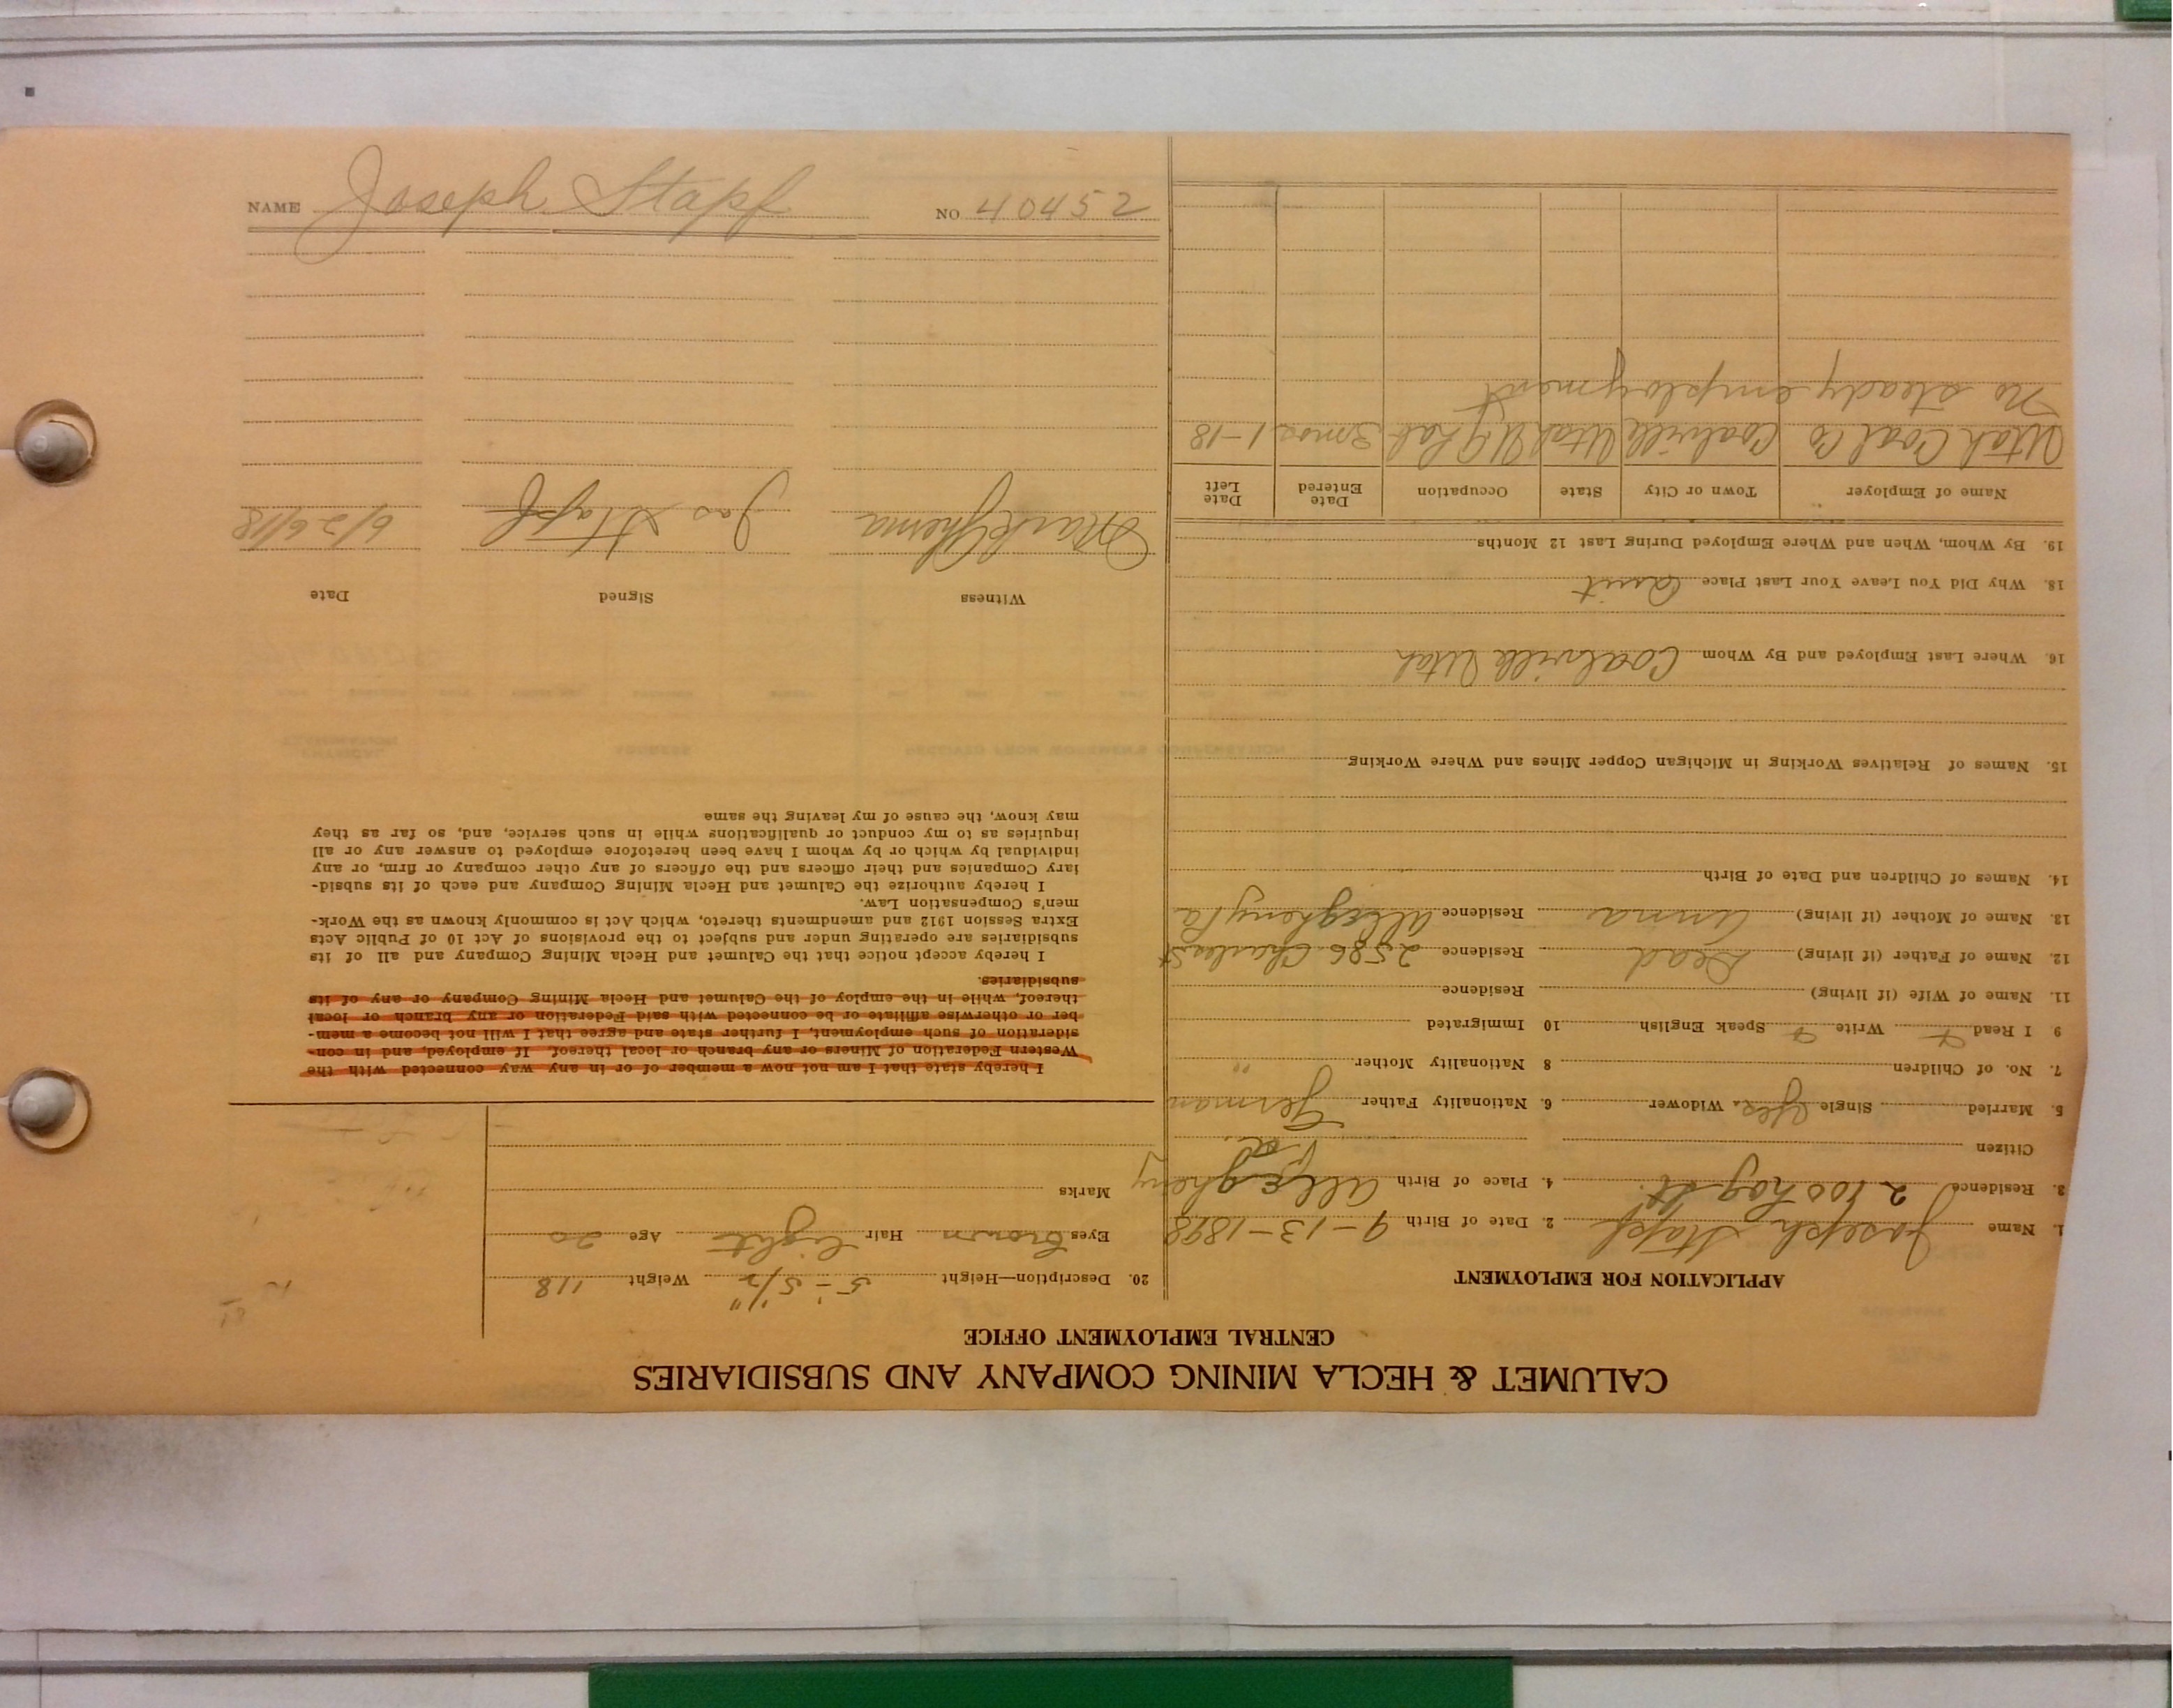 CALUMET & HECLA MINING COMPANY AND SUBSIDIARIES
CENTRAL EMPLOYMENT OFFICE
APPLICATION FOR EMPLOYMENT
1. Name Joseph Stapf 2. Date of Birth 9-13-1898
3. Residence 2100 St. 4. Place of Birth Allegheny
Citizen Pa.
5. Married Single Yes. Widower 6. Nationality Father German
7. No. of Children 8 Nationality Mother "
9 I Read Write Speak English 10 Immigrated
11. Name of Wife (if living) Residence
12. Name of Father (if living) Dead Residence 2586 Charles St
13. Name of Mother (if living) Anna Residence Allegheny Pa
14. Names of Children and Date of Birth
15. Names of Relatives Working in Michigan Copper Mines and Where Working
16. Where Last Employed and By Whom Coalville Utah
18. Why Did You Leave Your Last Place Quit
19. By Whom, When and Where Employed During Last 12 Months
Name of Employer Town or City State Occupation Date Entered Date Left
Utah Coal Co Coalville Utah U G Lab 3 mos 1-18
No steady employment
20. Description—Height 5'-5 1/2" Weight 118
Eyes Brown Hair Light Age 20
Marks
I hereby state that I am not now a member of or in any way connected with the
Western Federation of Miners or any branch or local thereof. If employed, and in con-
sideration of such employment, I further state and agree that I will not become a mem-
ber or otherwise affiliate or be connected with said Federation or any branch or local
thereof, while in the employ of the Calumet and Hecla Mining Company or any of its
subsidiaries.
I hereby accept notice that the Calumet and Hecla Mining Company and all of its
subsidiaries are operating under and subject to the provisions of Act 10 of Public Acts
Extra Session 1912 and amendments thereto, which Act is commonly known as the Work-
men's Compensation Law.
I hereby authorize the Calumet and Hecla Mining Company and each of its subsid-
iary Companies and their officers and the officers of any other company or firm, or any
individual by which or by whom I have been heretofore employed to answer any or all
inquiries as to my conduct or qualifications while in such service, and, so far as they
may know, the cause of my leaving the same
Witness Signed Date
Jos Stapf 6/26/18
NAME Joseph Stapf NO 40452